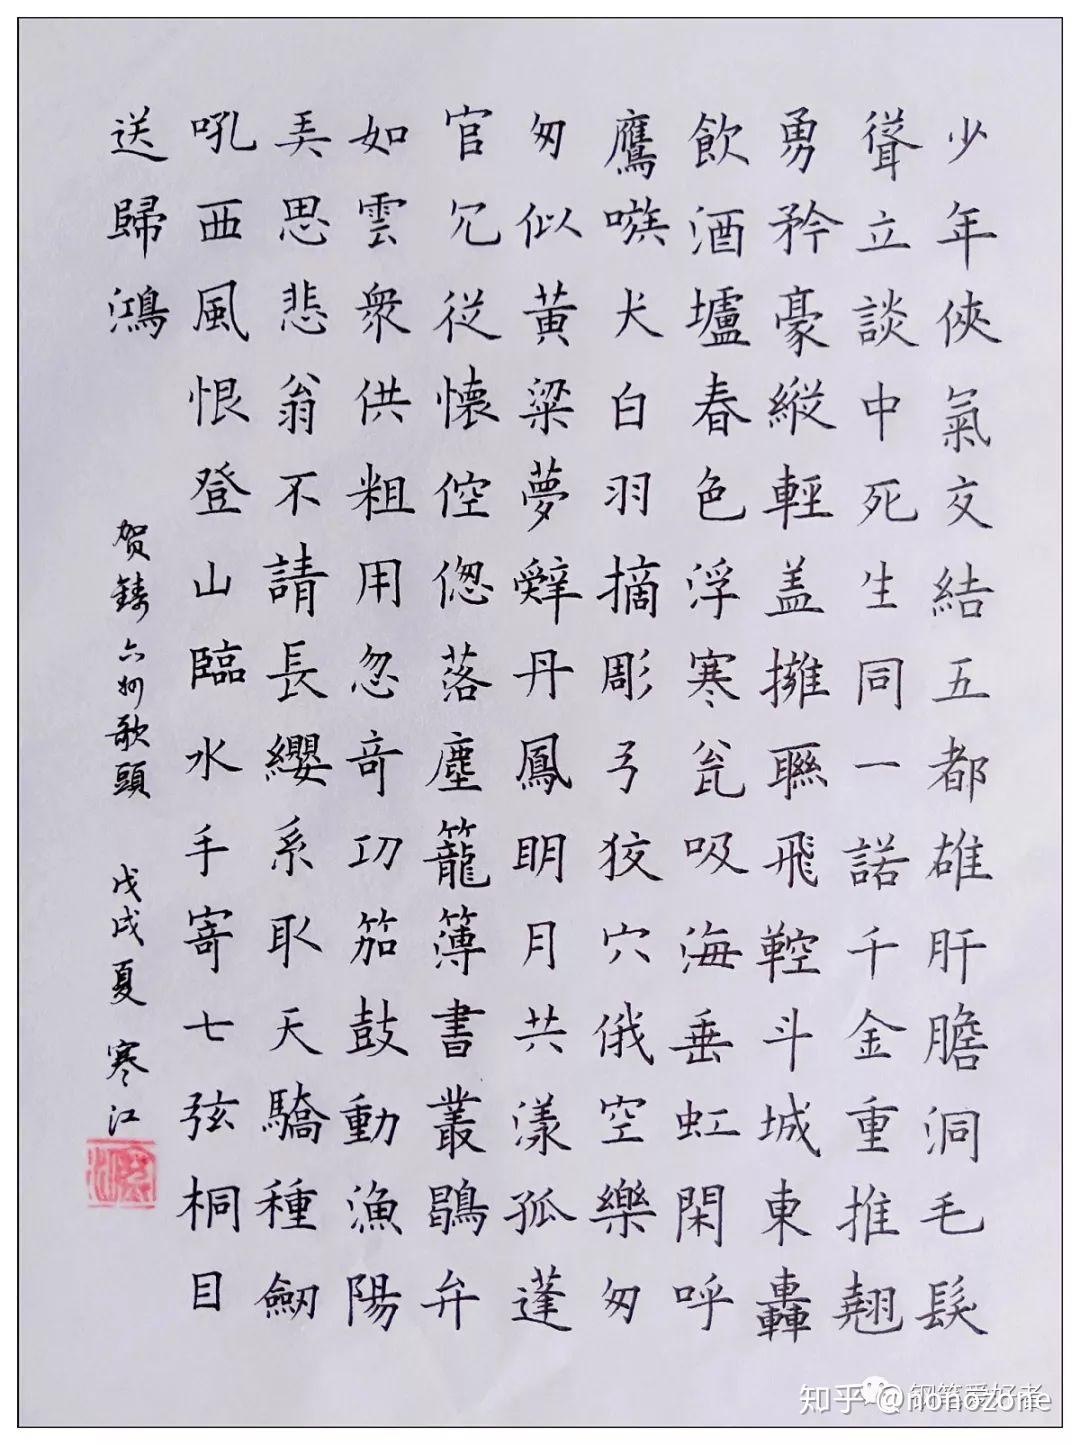 少年俠氣交結五都雄肝膽洞毛髮
聳立談中死生同一諾千金重推翹
勇矜豪縱輕盖擁聮飛鞚斗城東轟
飲酒壚春色浮寒瓮吸海垂虹閑呼
鷹嗾犬白羽摘彫弓狡穴俄空樂匆
匆似黃粱夢辭丹鳳明月共漾孤蓬
官冗從懷倥偬落塵籠簿書叢鶡弁
如雲衆供粗用忽奇功笳鼓動漁陽
弄思悲翁不請長纓系取天驕種劒
吼西風恨登山臨水手寄七弦桐目
送歸鴻
贺鑄六州歌頭 戊戌夏 寒江
知乎 @nonozone
钢笔爱好者